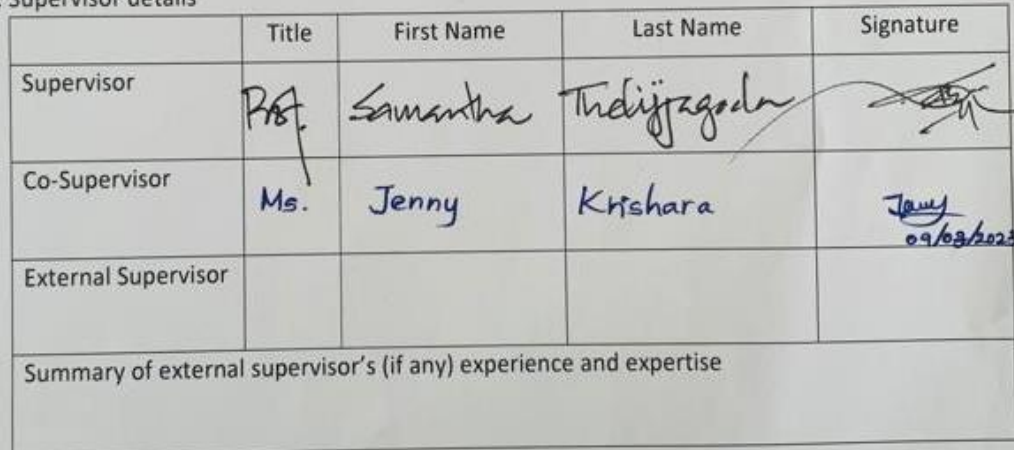 Supervisor details
Title First Name Last Name Signature
Supervisor Prof. Samantha Thelijjagoda
Co-Supervisor Ms. Jenny Krishara Jenny
09/03/2023
External Supervisor
Summary of external supervisor's (if any) experience and expertise